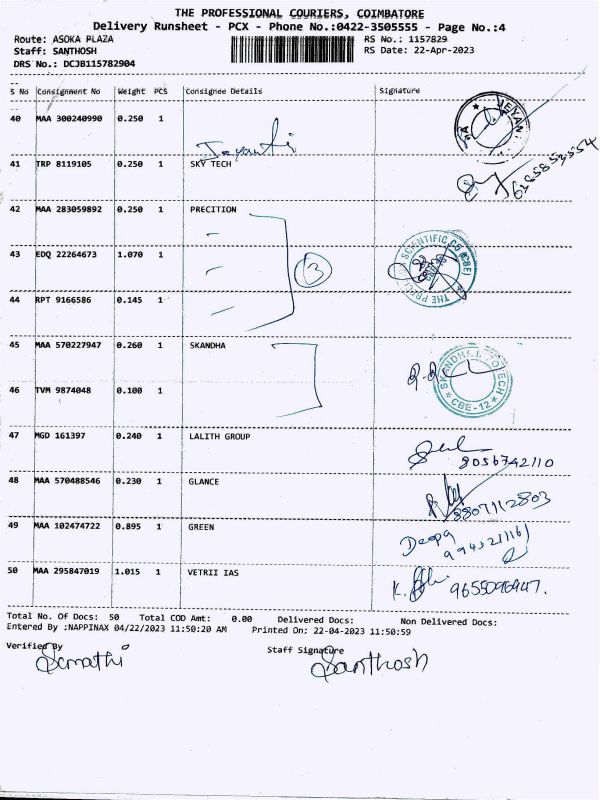 THE PROFESSIONAL COURIERS, COIMBATORE
Delivery Runsheet - PCX - Phone No.:0422-3505555 - Page No.:4
Route: ASOKA PLAZA RS No.: 1157829
Staff: SANTHOSH RS Date: 22-Apr-2023
DRS No.: DCJB115782904
S No Consignment No Weight PCS Consignee Details Signature
40 MAA 300240990 0.250 1
Jeyanti
41 TRP 8119105 0.250 1 SKY TECH
42 MAA 283059892 0.250 1 PRECITION
43 EDQ 22264673 1.070 1
3
44 RPT 9166586 0.145 1
45 MAA 570227947 0.260 1 SKANDHA
CBE-12
46 TVM 9874048 0.100 1
47 MGD 161397 0.240 1 LALITH GROUP
8056742110
48 MAA 570488546 0.230 1 GLANCE
8807112803
49 MAA 102474722 0.895 1 GREEN
Deepa
50 MAA 295847019 1.015 1 VETRII IAS
Total No. Of Docs: 50 Total COD Amt: 0.00 Delivered Docs: Non Delivered Docs:
Entered By :NAPPINAX 04/22/2023 11:50:20 AM Printed On: 22-04-2023 11:50:59
Verified By Staff Signature
Santhosh